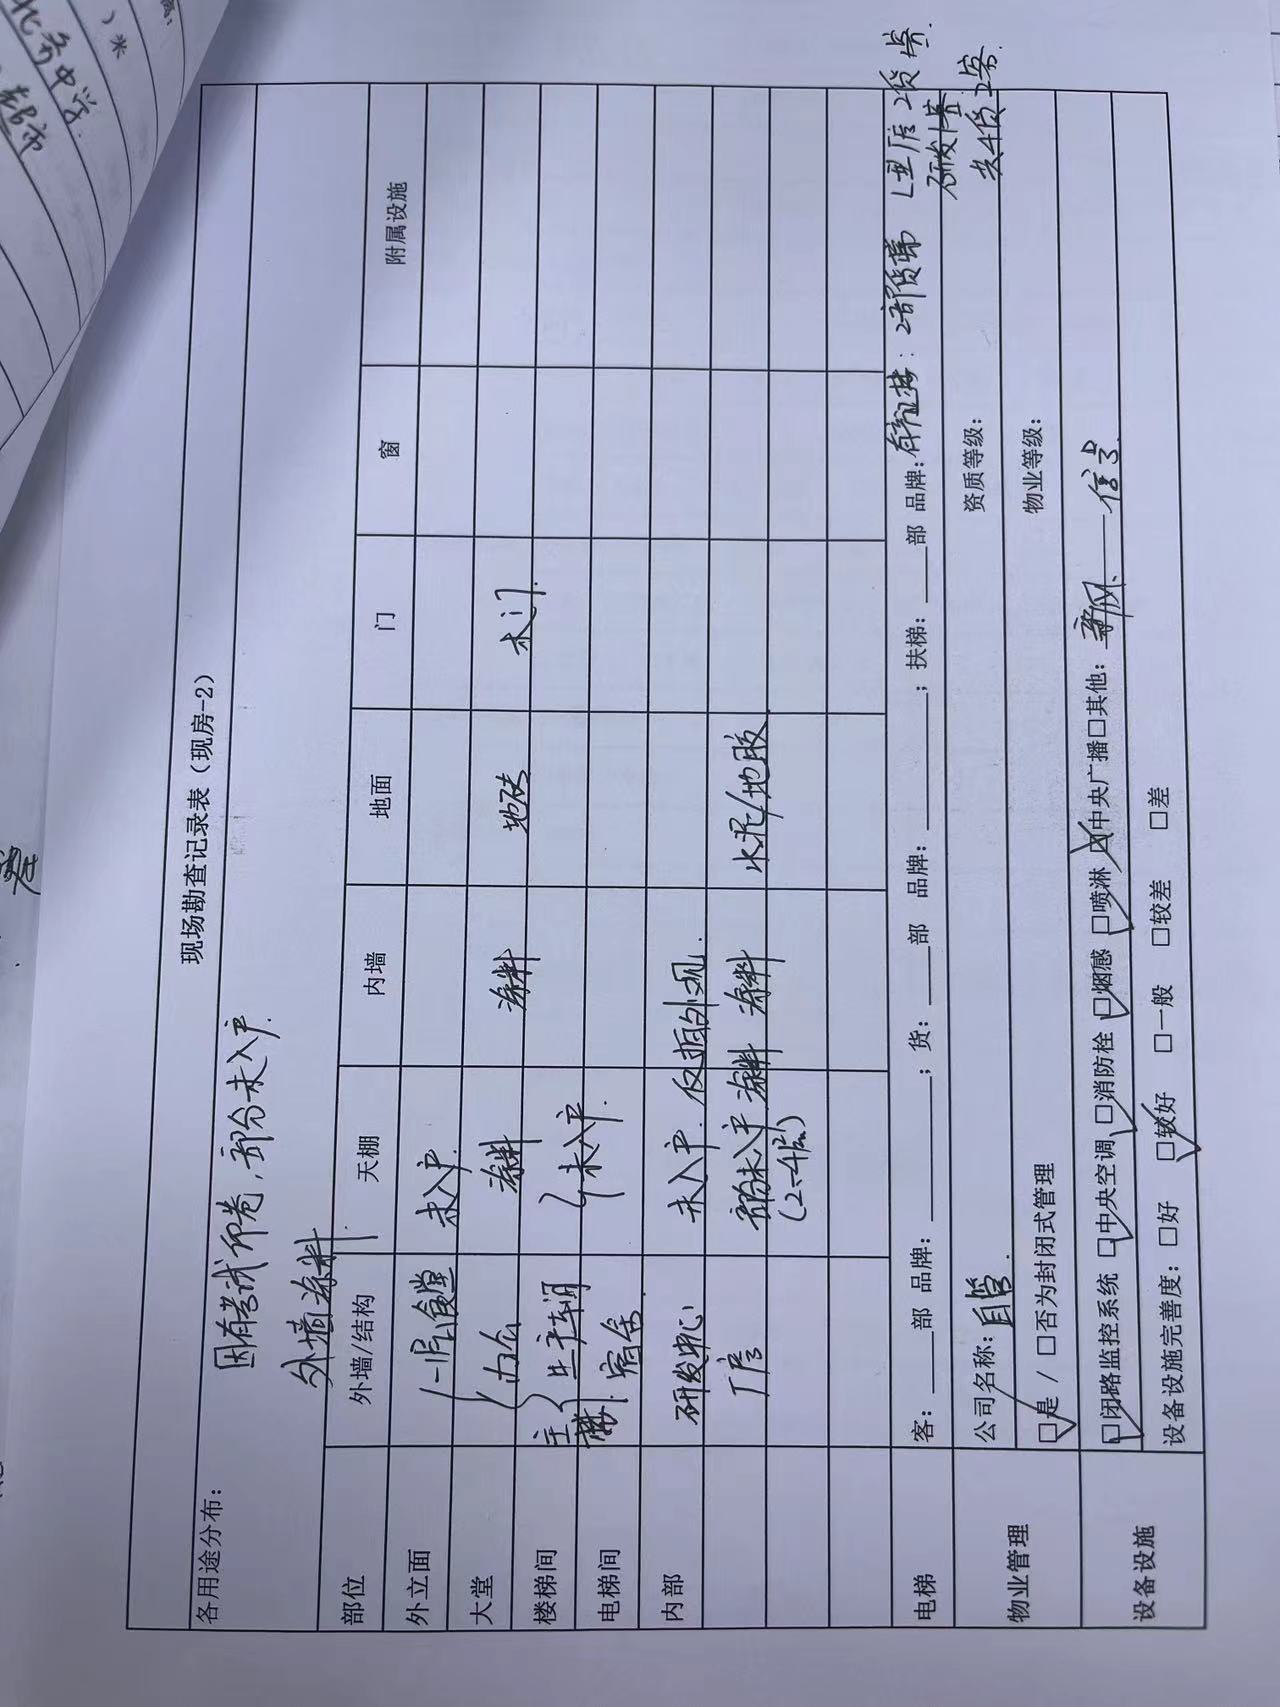 现场勘查记录表（现房-2）
各用途分布：
因有考试印卷，部分未入户.
外墙涂料
部位 外墙/结构 天棚 内墙 地面 门 窗 附属设施
外立面 一层食堂 未入户.
大堂 办公 涂料 涂料 地砖 木门.
楼梯间 主楼 生产车间 未入户.
电梯间 宿舍
内部 研发中心 未入户. 仅拍外观.
厂房 部分未入户 涂料 涂料 水泥/地胶
(2、4层)
电梯 客：___部 品牌：______；货：___部 品牌：______；扶梯：___部 品牌：
2部货梯
研发1客
物业管理 公司名称：自管. 资质等级：
□是 / □否为封闭式管理 物业等级：
设备设施 □闭路监控系统 □中央空调 □消防栓 □烟感 □喷淋 □中央广播 □其他： 信号.
设备设施完善度：□好 □较好 □一般 □较差 □差
）米
中学
超市